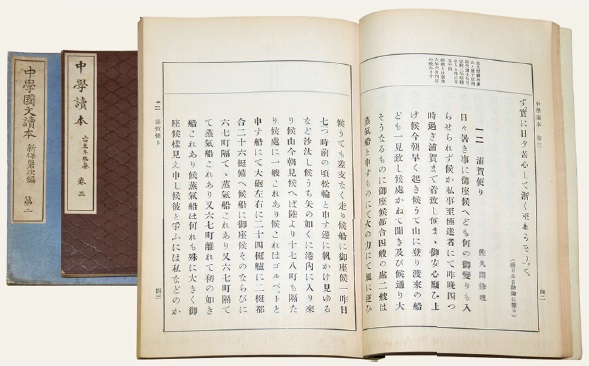 中學國文讀本
新保磐次編
第二
中學讀本
卷三
中學讀本 卷三
ず實に日夕苦心して漸く
一二 浦賀便り
佐久間修理
日々暑き事に御座候へども何の御變りも入
らせられず候か私事至極達者にて昨晩四つ
時過ぎ浦賀まで着致し候まゝ御安心願ひ上
げ候今朝早く起き候うて山に登り渡來の船
ども一見致し候處かねて聞き及び候通り大
そうなるものに御座候都合四艘の處二艘は
蒸氣船と申すものにて火の力にて風に逆ひ
四二
一二 浦賀便り
候うても差支なく走り候船に御座候一昨日
七つ時前の頃松輪と申す邊に帆かけ見ゆる
など沙汰し候うち矢の如くに港內に入り來
り候由今朝見候へば陸より十七八町も隔た
り候處に一艘これあり候これはゴルベットと
申す船にて大砲左右に二十四挺艫に二挺都
合二十六挺備へ候船に御座候そのならびに
六七町隔てゝ蒸氣船これあり又六七町隔て
て蒸氣船これあり又六七町離れて初の如き
船これあり候蒸氣船は何れも殊に大きく御
座候樣見え申し候彼と爭ふには私などのか
四三